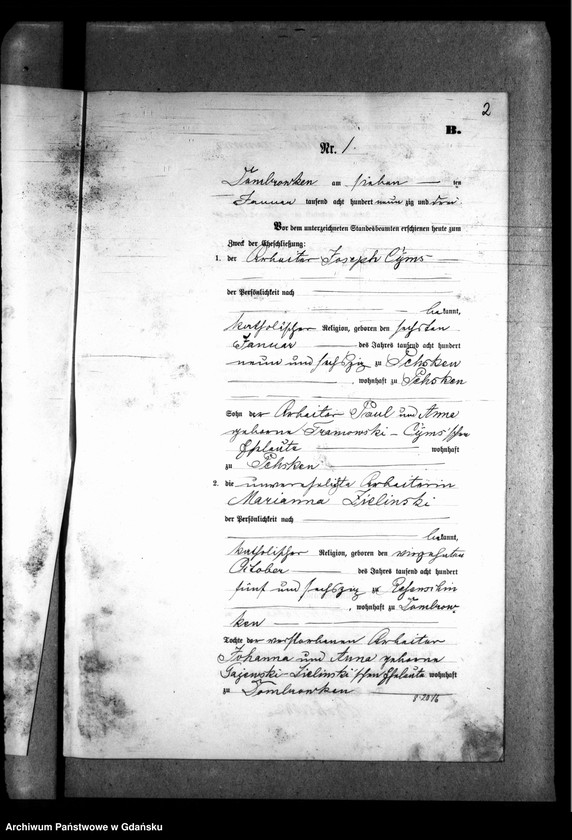 2
B.
Nr. 1.
Dombrowken am sieben ten
Januar tausend acht hundert neunzig und drei
Vor dem unterzeichneten Standesbeamten erschienen heute zum
Zweck der Eheschließung:
1. der Arbeiter Joseph Cyms
der Persönlichkeit nach
bekannt,
katholischer Religion, geboren den sechsten
Januar des Jahres tausend acht hundert
neun und sechszig zu Pehsken
, wohnhaft zu Pehsken
Sohn der Arbeiter Paul und Anna
geborne Framowski - Cyms'schen
Eheleute wohnhaft
zu Pehsken
2. die unverehelichte Arbeiterin
Marianna Zielinski
der Persönlichkeit nach
bekannt,
katholischer Religion, geboren den vierzehnten
October des Jahres tausend acht hundert
fünf und sechszig zu
, wohnhaft zu Dombrow-
ken
Tochter der verstorbenen Arbeiter
Johanna und Anna geborne
Gajewski-Zielinski'schen Eheleute wohnhaft
zu Dombrowken
Archiwum Państwowe w Gdańsku